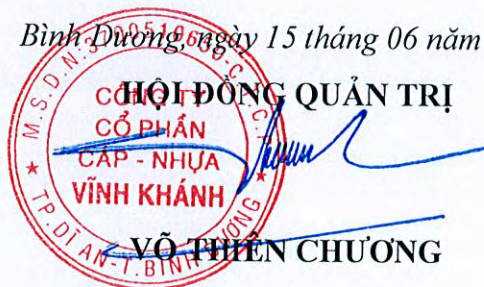 Bình Dương, ngày 15 tháng 06 năm
HỘI ĐỒNG QUẢN TRỊ
CÔNG TY
CỔ PHẦN
CÁP - NHỰA
VĨNH KHÁNH
TP.DĨ AN-T.BÌNH DƯƠNG
VÕ THIÊN CHƯƠNG